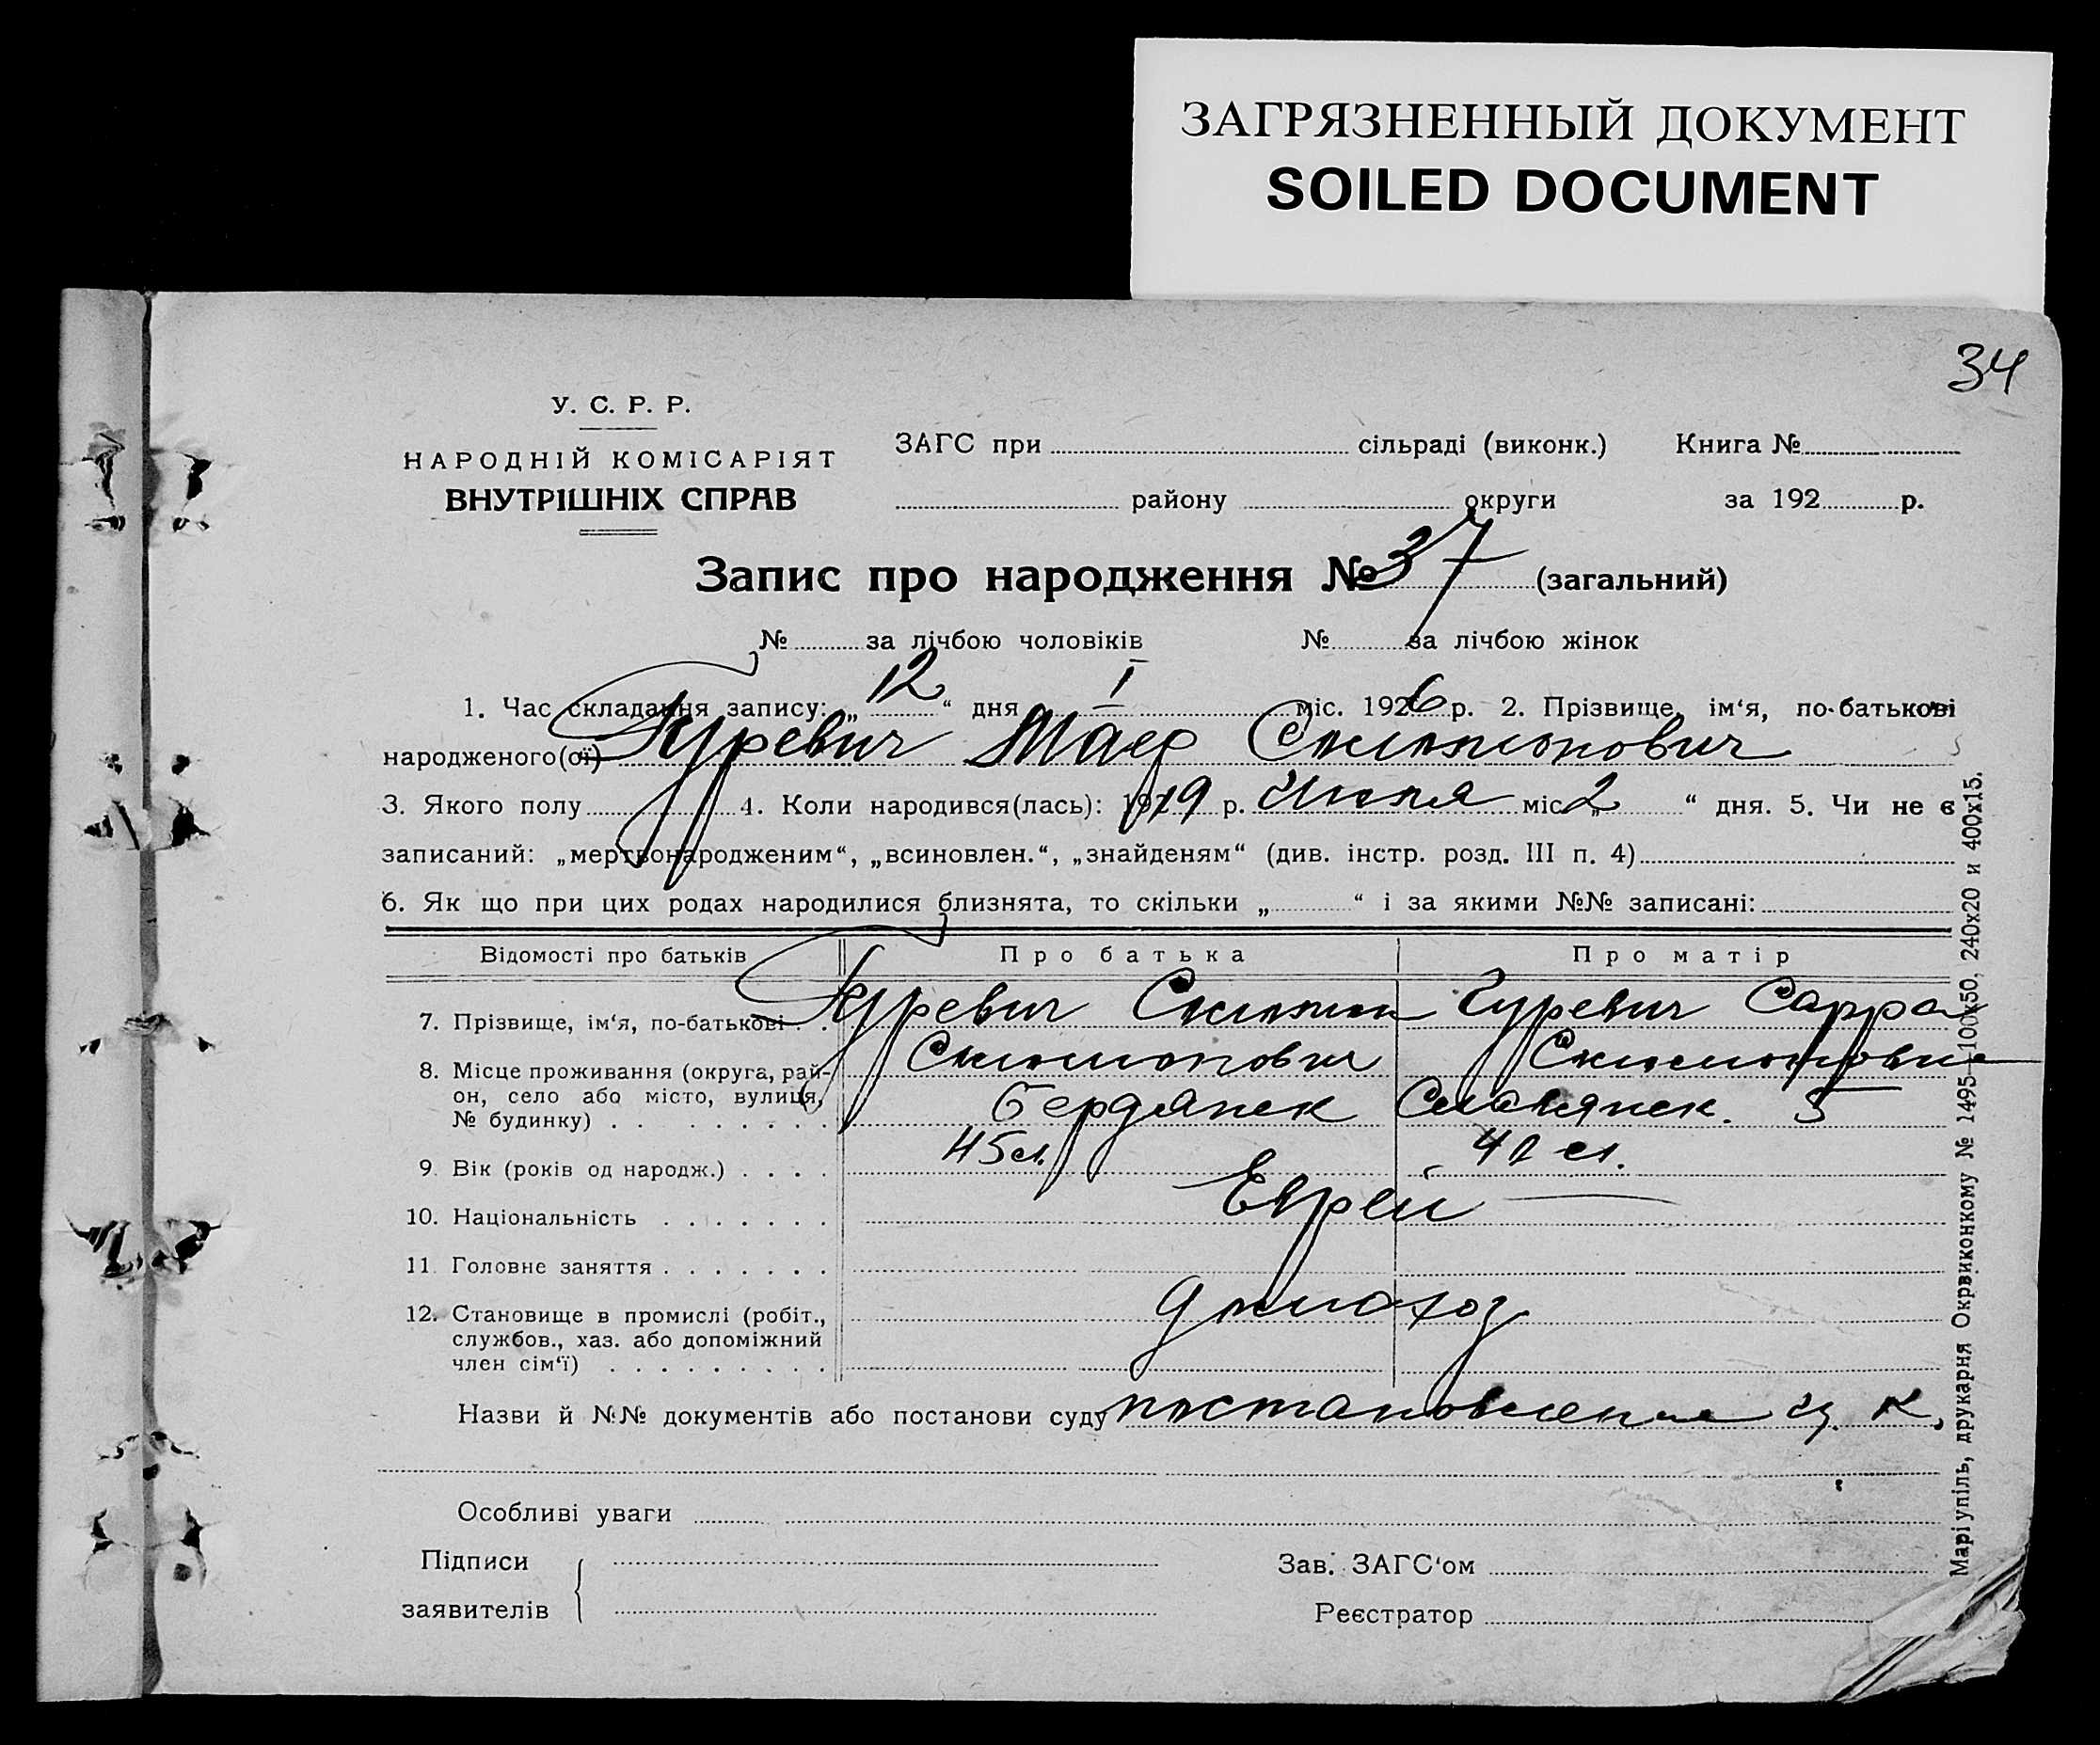 ЗАГРЯЗНЕННЫЙ ДОКУМЕНТ
SOILED DOCUMENT
34
У. С. Р. Р.
НАРОДНІЙ КОМІСАРІЯТ
ВНУТРІШНІХ СПРАВ
ЗАГС при сільраді (виконк.) Книга №
району округи за 192 р.
Запис про народження № 37 (загальний)
№ за лічбою чоловіків № за лічбою жінок
1. Час складання запису: „ 12 “ дня I міс. 1926 р. 2. Прізвище, ім‘я, по-батькові
народженого(ої) Гуревич Маер
3. Якого полу 4. Коли народився(лась): 1919 р. міс. „ 2 “ дня. 5. Чи не є
записаний: „мертвонародженим“, „всиновлен.“, „знайденям“ (див. інстр. розд. III п. 4)
6. Як що при цих родах народилися близнята, то скільки „ “ і за якими №№ записані:
Відомості про батьків Про батька Про матір
7. Прізвище, ім‘я, по-батькові . . Гуревич Гуревич Сарра
8. Місце проживання (округа, рай-
он, село або місто, вулиця,
№ будинку) . . . . . . . . . Бердянск 5
9. Вік (років од народж.) . . . . 45 л. 42 л.
10. Національність . . . . . . . Еврей
11. Головне заняття . . . . . . .
12. Становище в промислі (робіт.,
службов., хаз. або допоміжний
член сім‘ї) . . . . . . . . .
Назви й №№ документів або постанови суду постановление К.
Особливі уваги
Підписи
заявителів
Зав. ЗАГС‘ом
Реєстратор
Маріупіль, друкарня Окрвиконкому № 1495—100х50, 240х20 и 400х15.